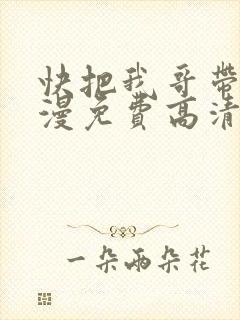 快把我哥带
漫免費高清
一朵兩朵花